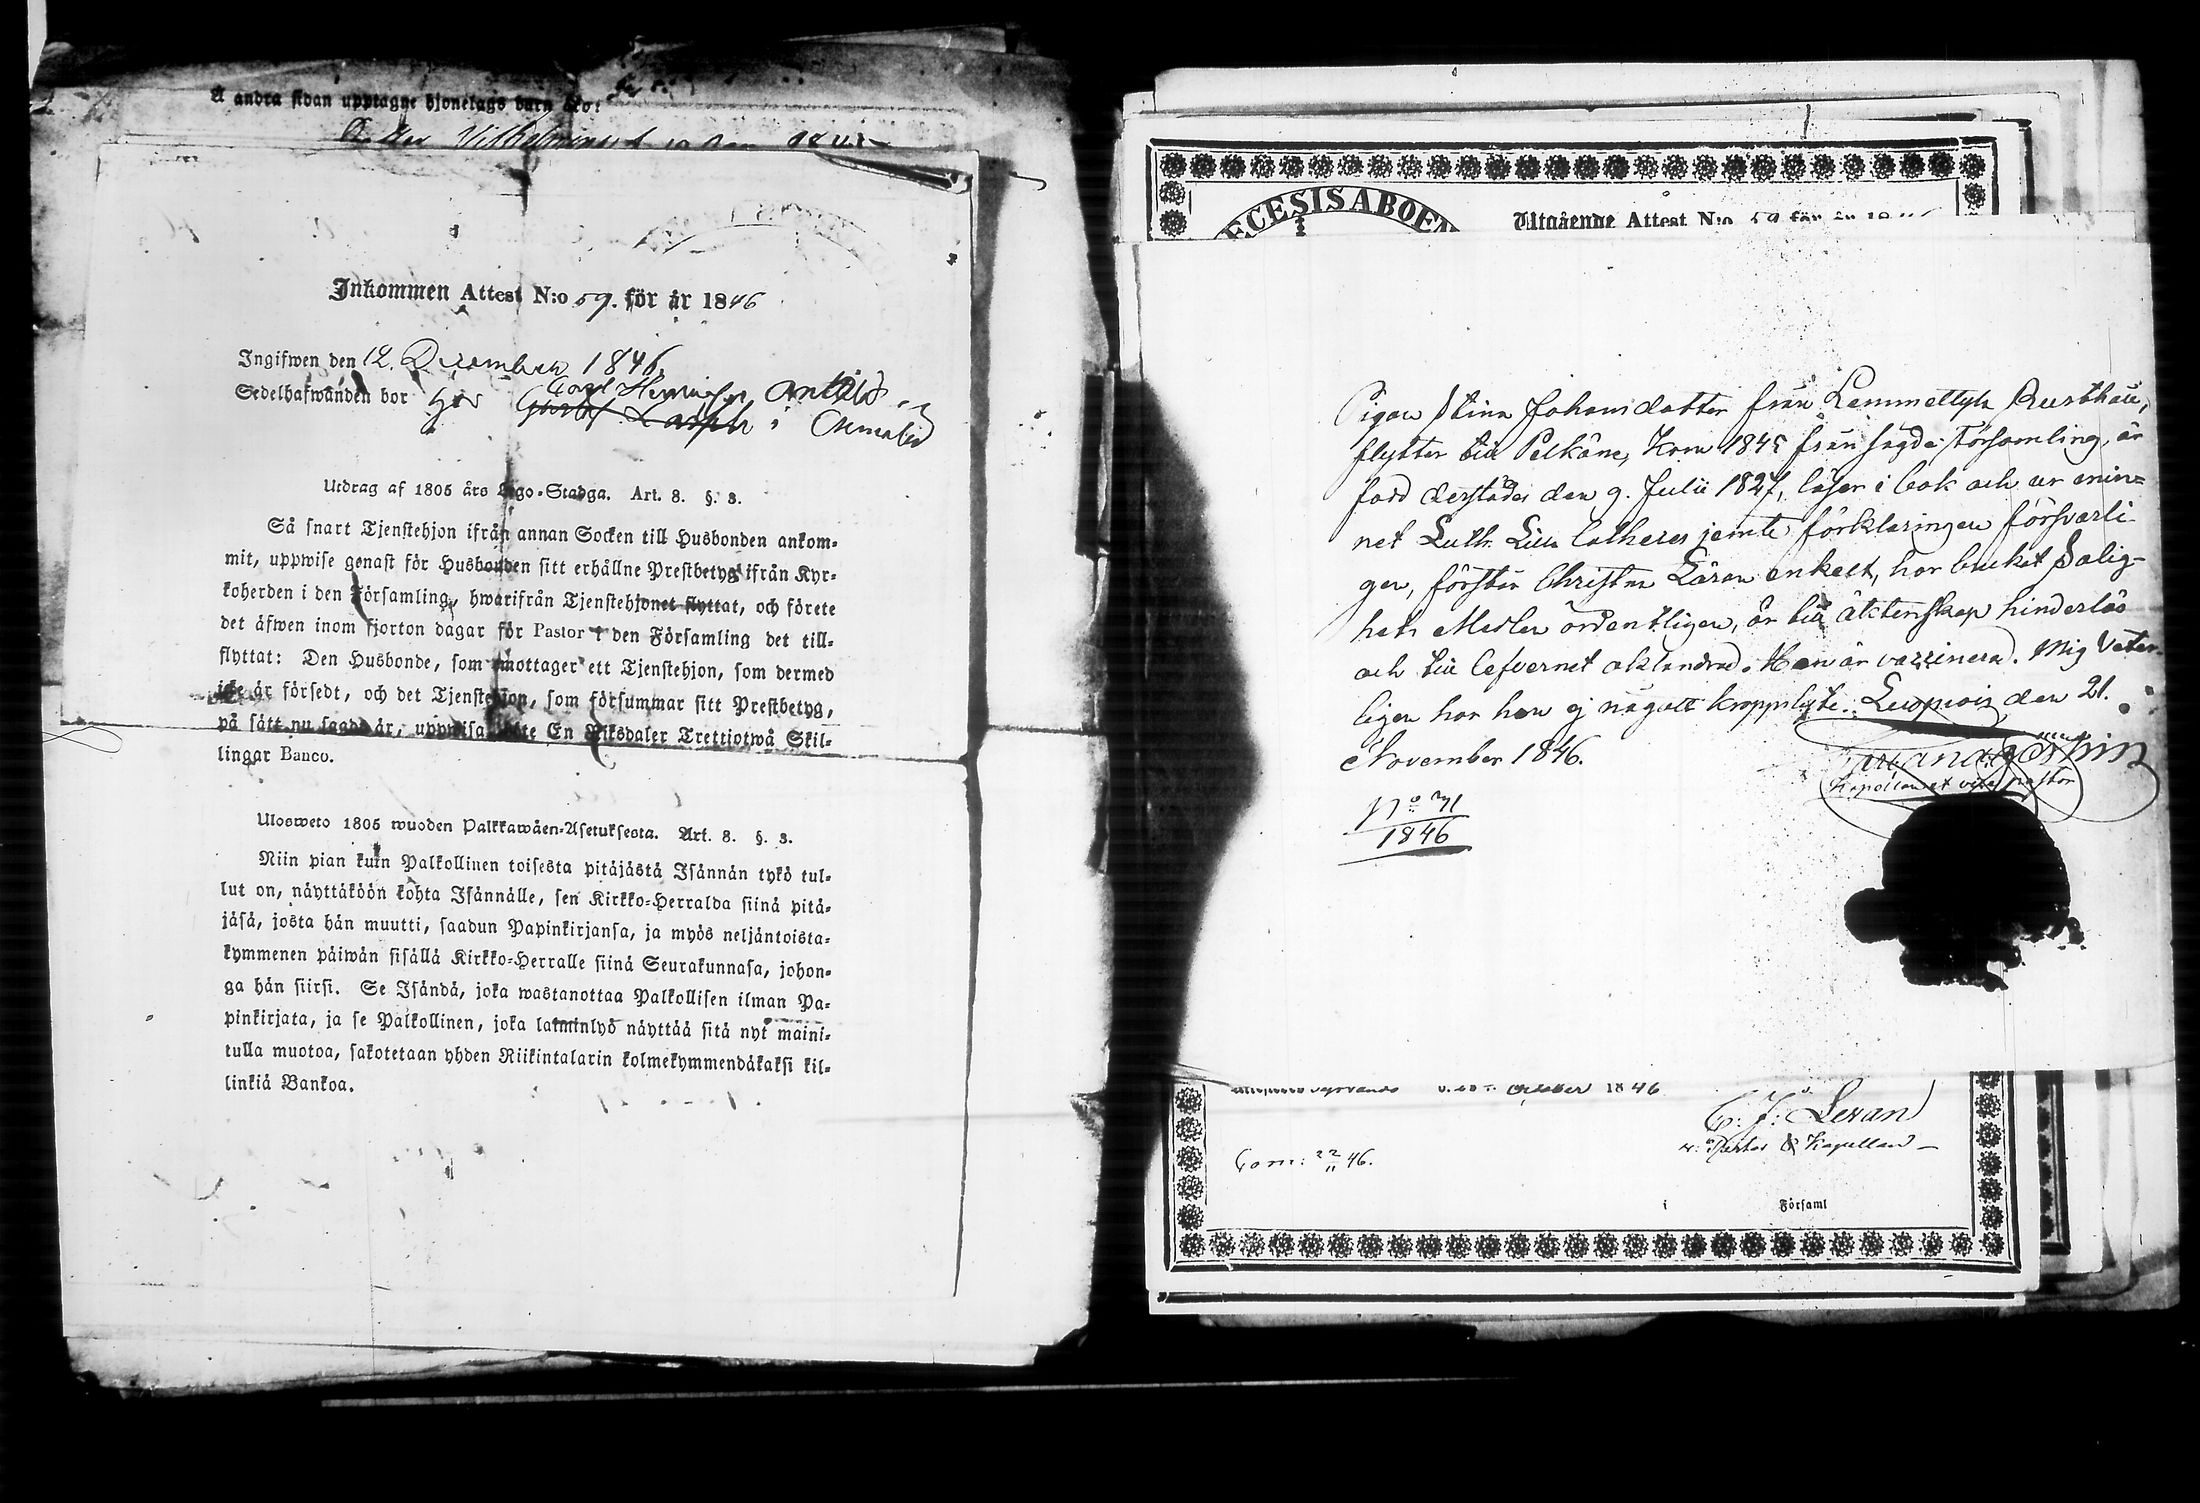 Å andra sidan upptagne hjonelags barn äro:
Inkommen Attest N:o 59. för år 1846
Ingifwen den 12. December 1846.
Sedelhafwanden bor hos Carl Henrichson Anttila
Gustaf i
Utdrag af 1805 års Lego-Stadga. Art. 8. §. 3.
Så snart Tjenstehjon ifrån annan Socken till Husbonden ankom-
mit, uppwise genast för Husbonden sitt erhållne Prestbetyg ifrån Kyr-
koherden i den Församling, hwarifrån Tjenstehjonet flyttat, och förete
det äfwen inom fjorton dagar för Pastor i den Församling det till-
flyttat: Den Husbonde, som emottager ett Tjenstehjon, som dermed
icke är försedt, och det Tjenstehjon, som försummar sitt Prestbetyg,
på sätt nu sagdt är, uppwisa, böte En Riksdaler Trettiotwå Skil-
lingar Banco.
Ulosweto 1805 wuoden Palkkawäen-Asetuksesta. Art. 8. §. 3.
Niin pian kuin Palkollinen toisesta pitäjästä Isännän tykö tul-
lut on, näyttäköön kohta Isännälle, sen Kirkko-Herralda siinä pitä-
jäsä, josta hän muutti, saadun Papinkirjansa, ja myös neljäntoista-
kymmenen päiwän sisällä Kirkko-Herralle siinä Seurakunnasa, johon-
ga hän siirsi. Se Isändä, joka wastanottaa Palkollisen ilman Pa-
pinkirjata, ja se Palkollinen, joka laiminlyö näyttää sitä nyt maini-
tulla muotoa, sakotetaan yhden Riikintalarin kolmekymmendäkaksi kil-
linkiä Bankoa.
ECESIS ABOEN
Utgående Attest N:o 59 för år 1846
Pigan Stina Johansdotter från Lemmettylä Rusthåll,
flyttar till Pelkäne, kom 1845 från sagde Församling, är
född derstädes den 9. Julii 1827, läser i bok och ur min-
net Luth. Lilla Catheces jemte förklaringen försvarli-
gen, förstår Christna Läran enkelt, har brukat Salig-
hets Medlen ordentligen, är till äktenskap hinderlös
och till lefvernet oklandrad. Hon är vaccinerad. Mig veter-
ligen har hon ej något kroppslyte. Luopiois den 21.
November 1846.
Kapellan et vice pastor
No 71
1846
October 1846
C. J. Lexan
v. Pastor & Kapellan
Com: 22/11 46.
i Församl